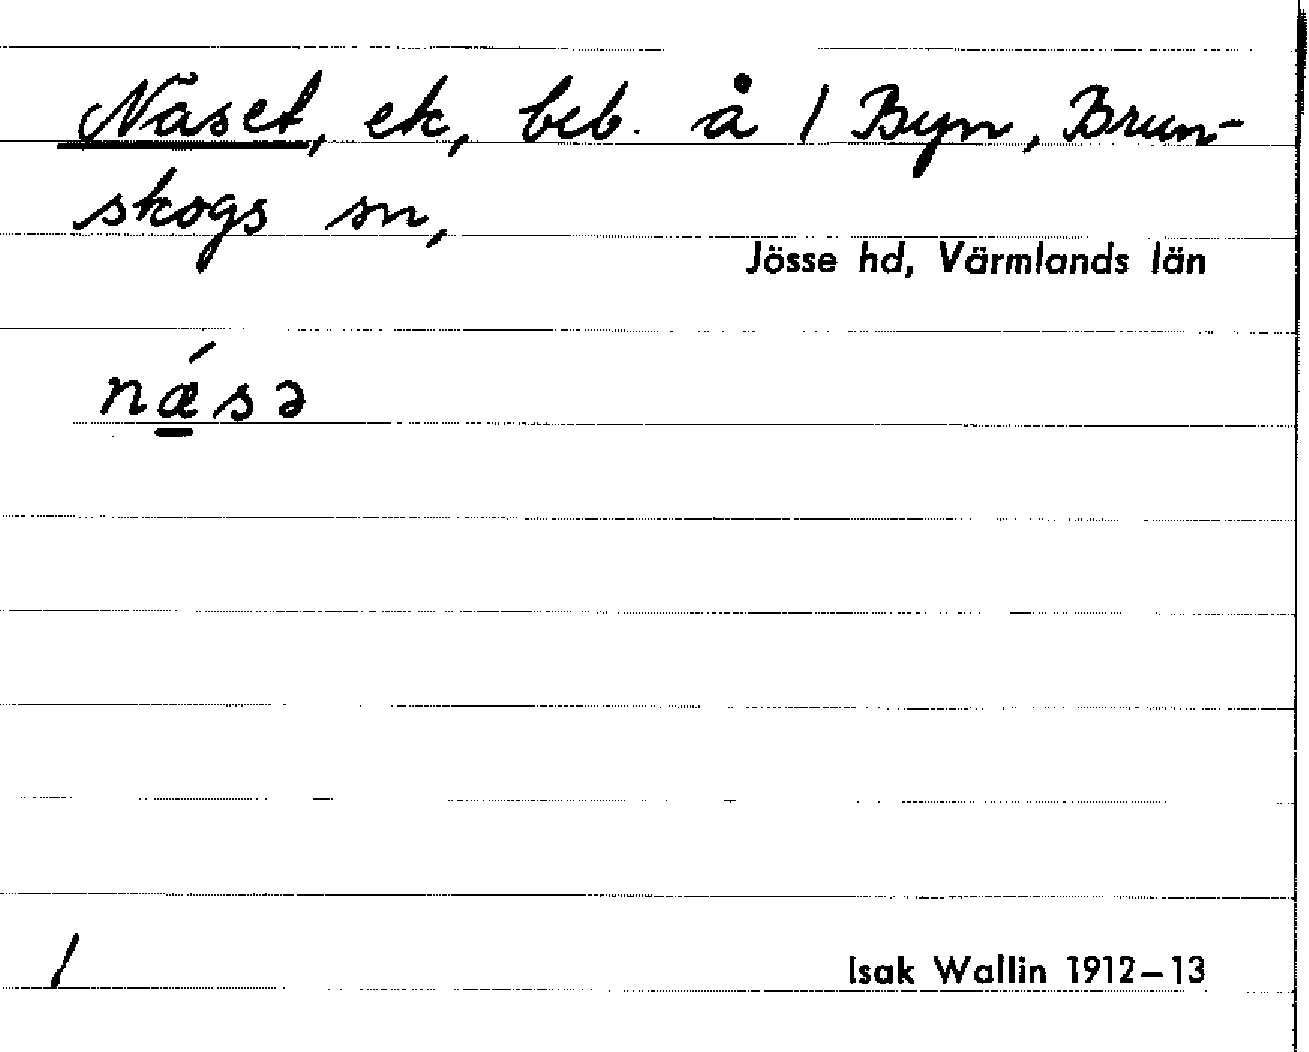 Näset, ek, beb. å 1 Byn, Brun-
skogs sn,
Jösse hd, Värmlands län
nǽ̱sə
1
Isak Wallin 1912–13